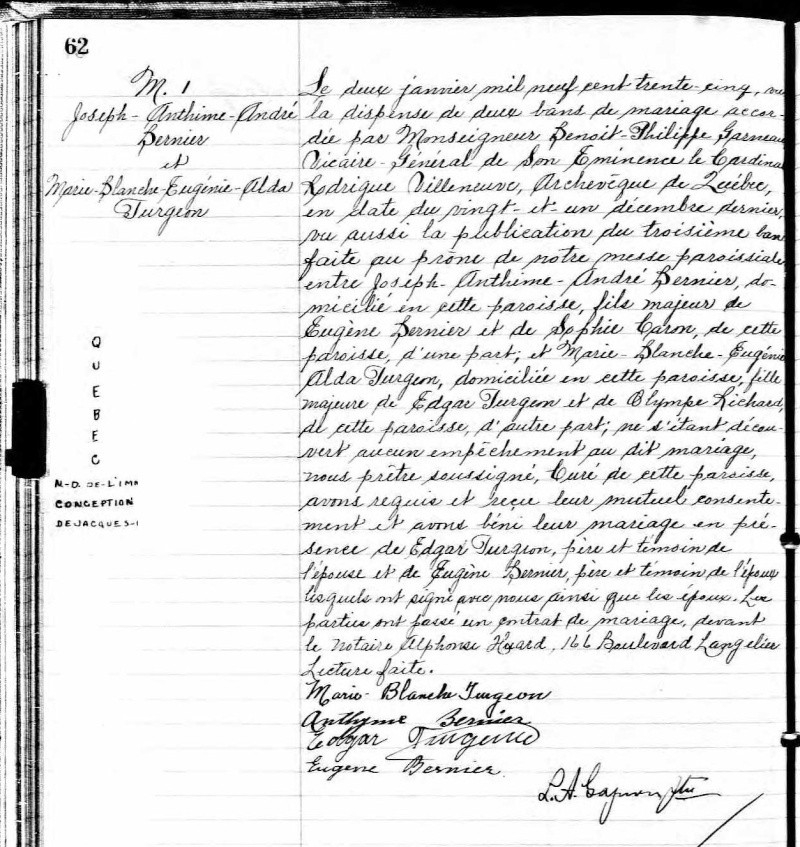 62
M. 1
Joseph-Anthime-André
Bernier
et
Marie-Blanche-Eugénie-Alda
Turgeon
QUEBEC
N-D. DE-L'IMM
CONCEPTION
DE JACQUES-
Le deux janvier mil neuf cent trente-cinq, vu
la dispense de deux bans de mariage accor-
dée par Monseigneur Benoit-Philippe Garneau
Vicaire-Général de Son Éminence le Cardinal
Rodrigue Villeneuve, Archevêque de Québec,
en date du vingt-et-un décembre dernier,
vu aussi la publication du troisième ban
faite au prône de notre messe paroissiale
entre Joseph-Anthime-André Bernier, do-
micilié en cette paroisse, fils majeur de
Eugène Bernier et de Sophie Caron, de cette
paroisse, d'une part; et Marie-Blanche-Eugénie
Alda Turgeon, domiciliée en cette paroisse, fille
majeure de Edgar Turgeon et de Olympe Richard,
de cette paroisse, d'autre part; ne s'étant décou-
vert aucun empêchement au dit mariage,
nous prêtre soussigné, Curé de cette paroisse,
avons requis et reçu leur mutuel consente-
ment et avons béni leur mariage en pré-
sence de Edgar Turgeon, père et témoin de
l'épouse et de Eugène Bernier, père et témoin de l'époux
lesquels ont signé avec nous ainsi que les époux. Les
parties ont passé un contrat de mariage, devant
le Notaire Alphonse Huard, 166 Boulevard Langelier
Lecture faite.
Marie-Blanche Turgeon
Anthyme Bernier
Edgar Turgeon
Eugene Bernier
L.A. ptre